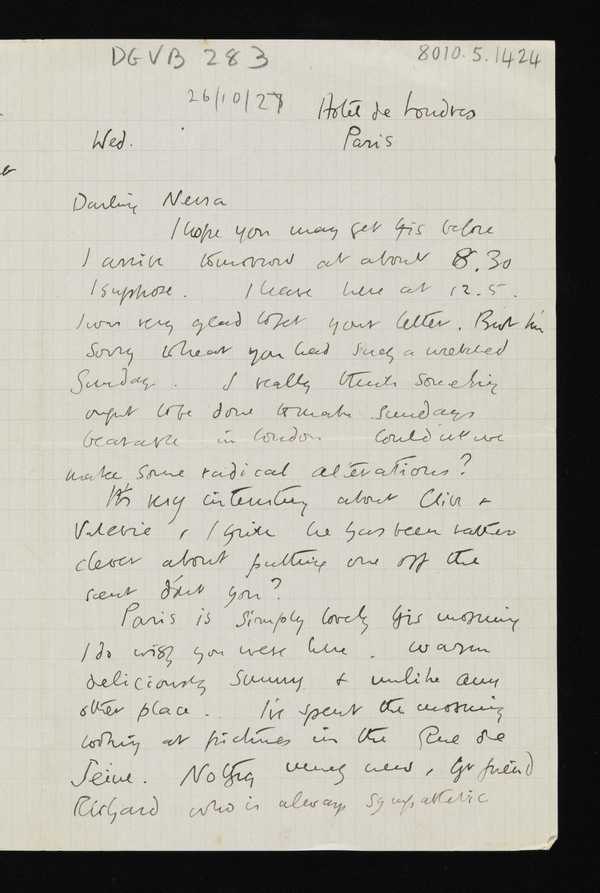 DGVB 283
8010.5.1424
26/10/27
Hotel de Londres
Wed.
Paris
Darling Nessa
I hope you may get this before
I arrive tomorrow at about 8.30
I suppose. I leave here at 12.5.
I was very glad to get your letter. But I'm
sorry to hear you had such a wretched
Sunday. I really think something
ought to be done to make Sundays
bearable in London. Couldn't we
make some radical alterations?
It's very interesting about Clive &
Valerie, I think he has been rather
clever about putting one off the
scent don't you?
Paris is simply lovely this morning
I do wish you were here. warm
deliciously sunny & unlike any
other place. I've spent the morning
looking at pictures in the Rue de
Seine. Nothing very new, friend
Richard who is always sympathetic